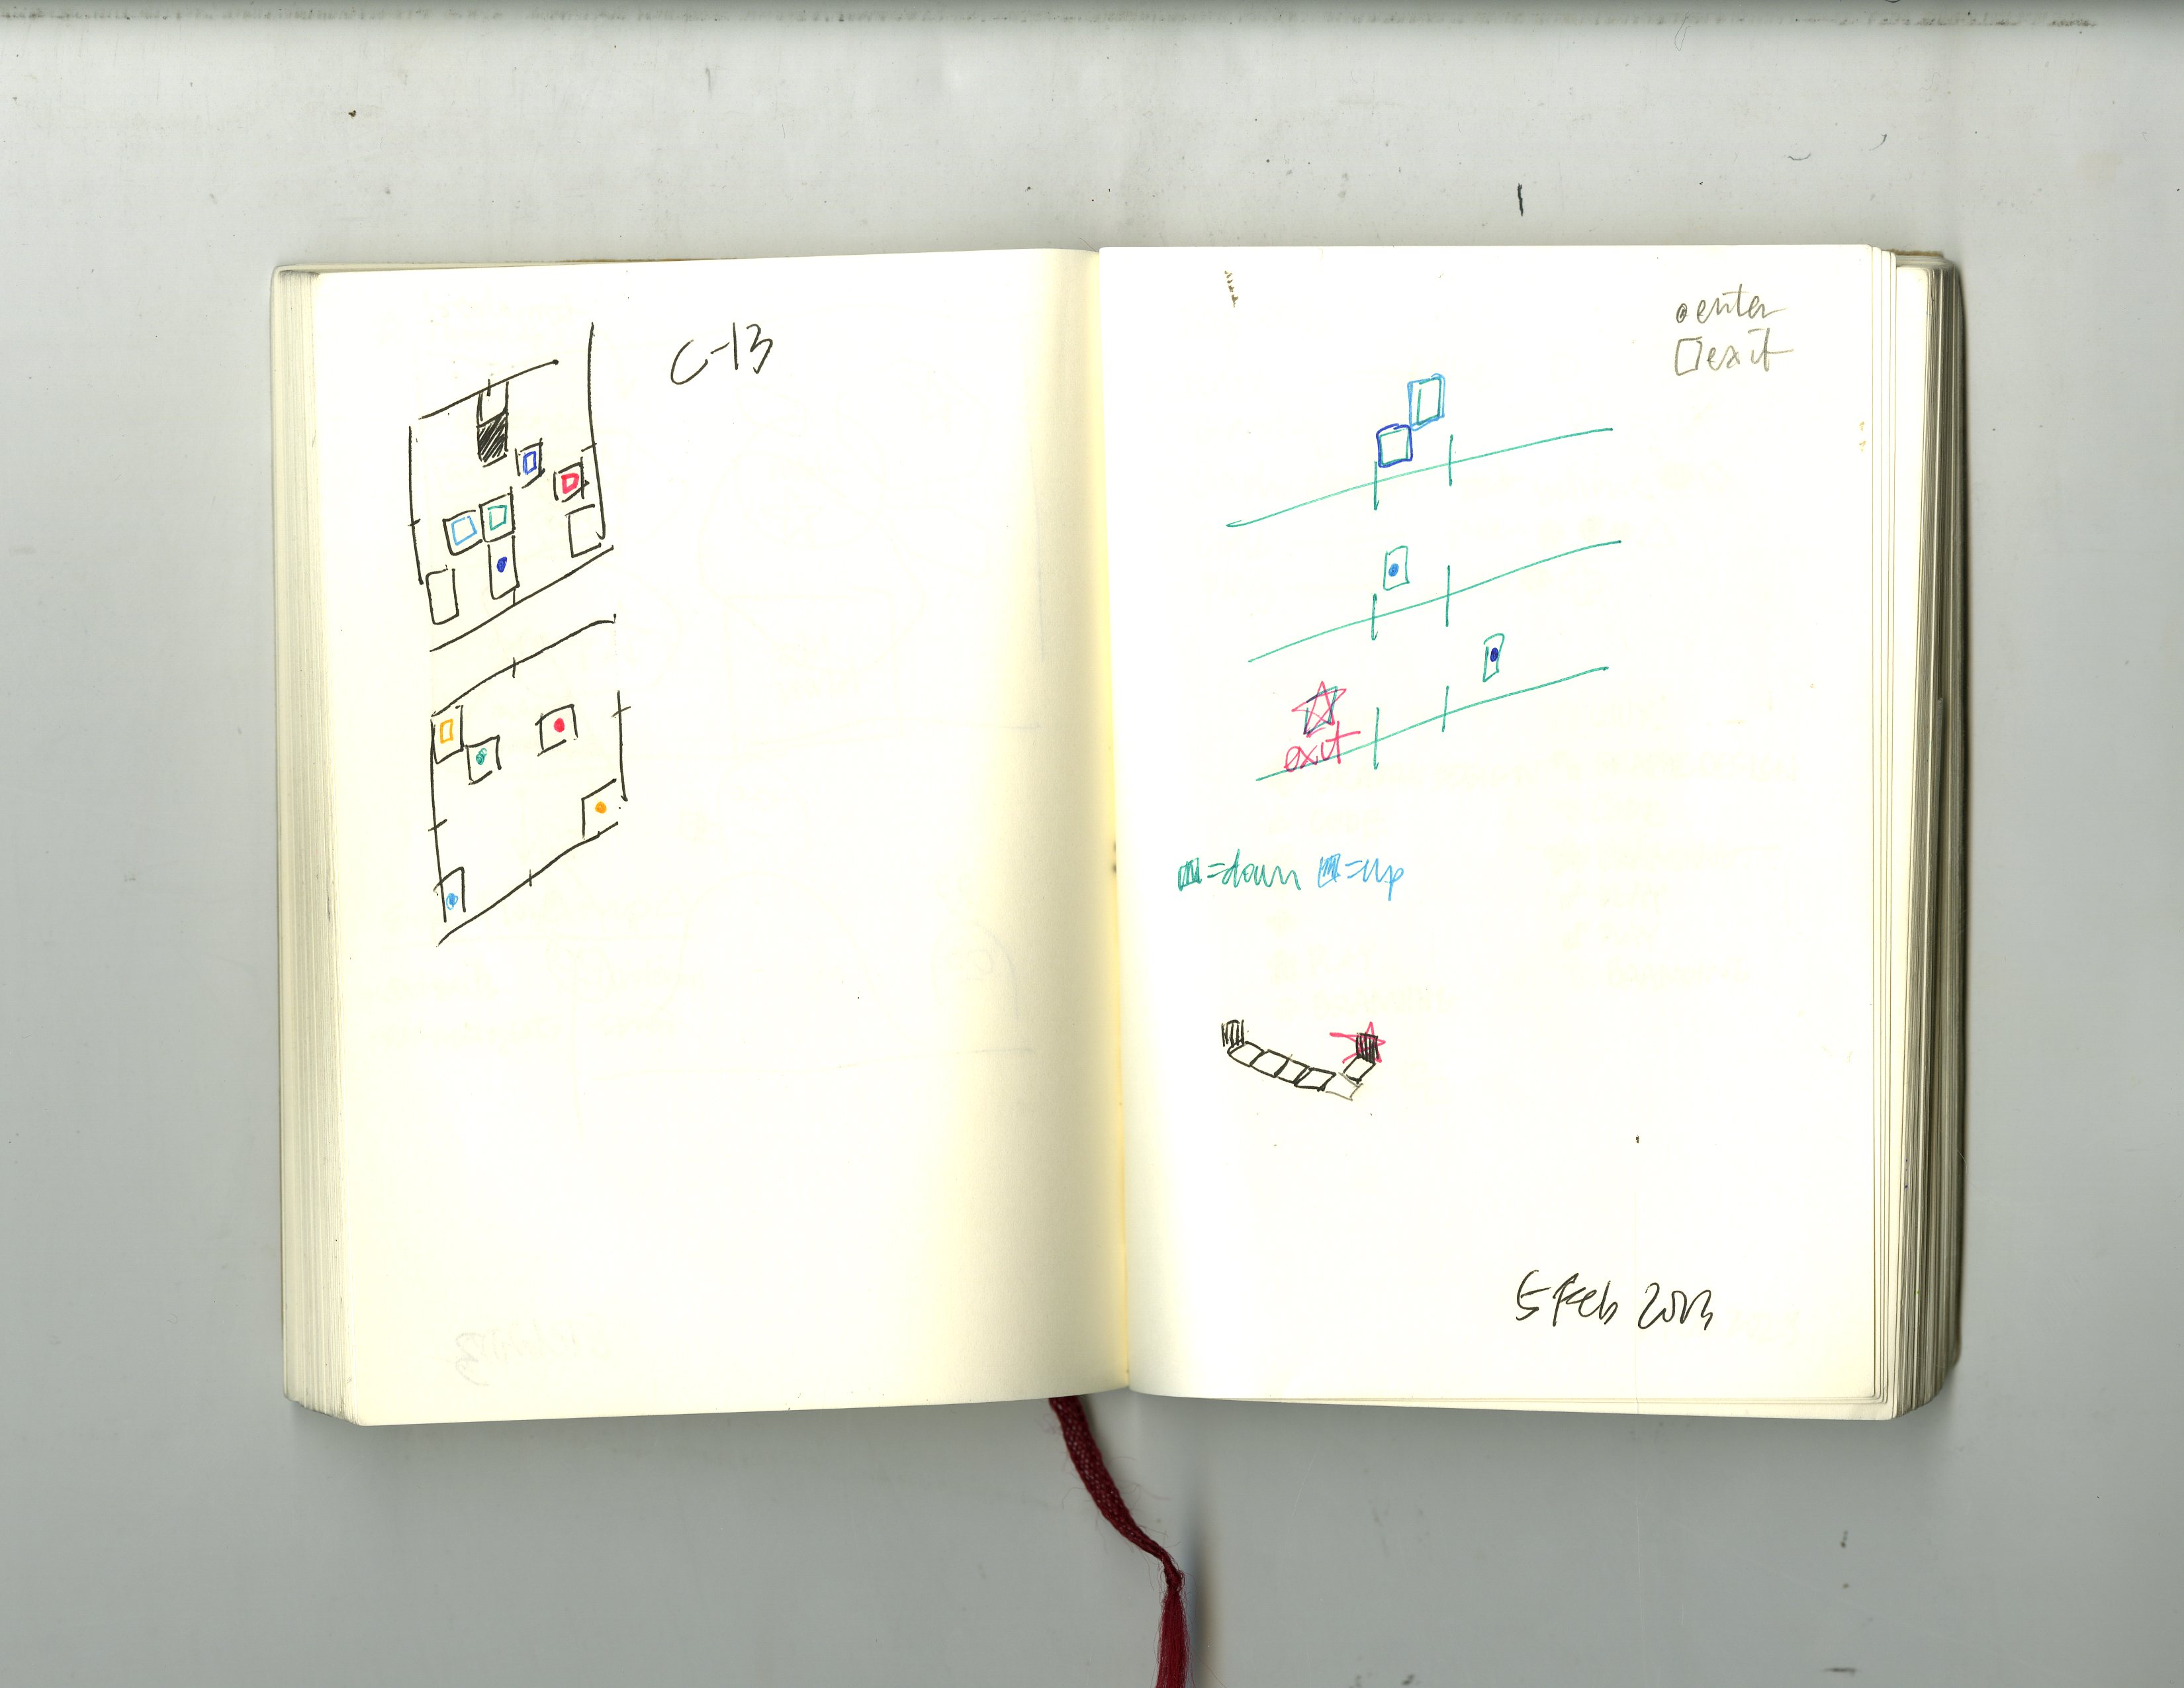 C-13
enter
exit
exit
=down =up
5 Feb 2013